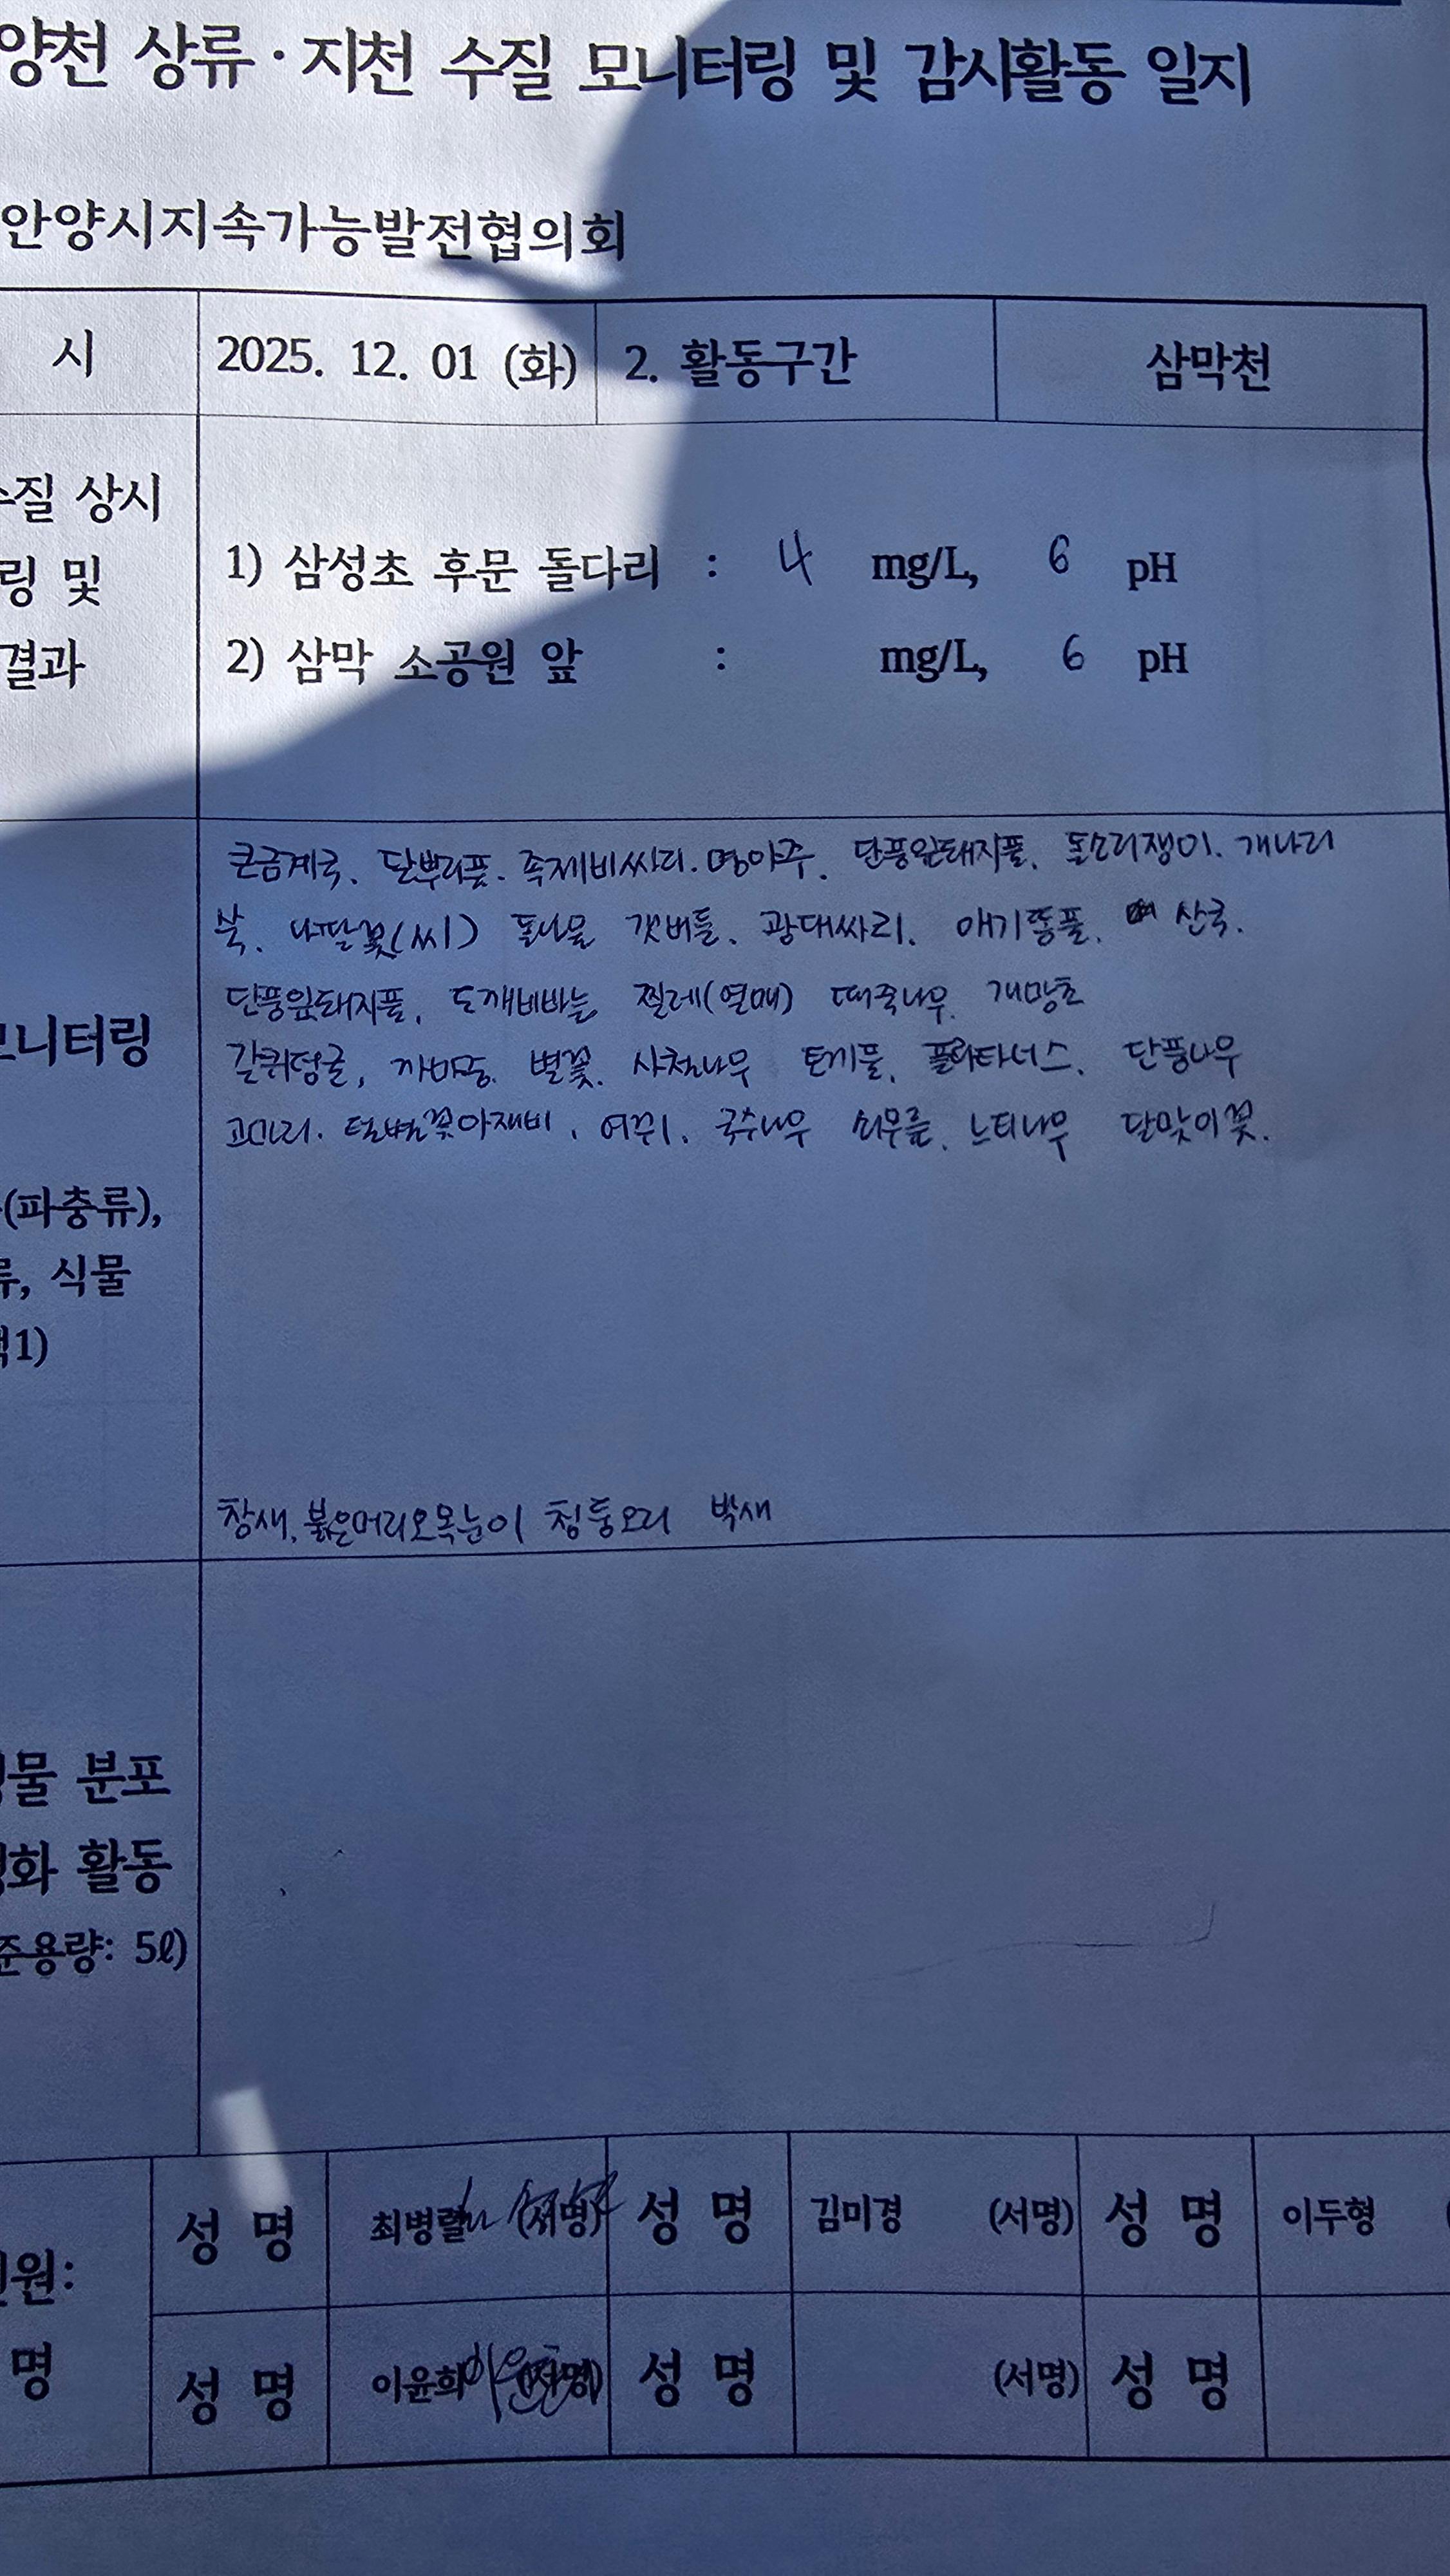 양천 상류 · 지천 수질 모니터링 및 감시활동 일지
안양시지속가능발전협의회
시 2025. 12. 01 (화) 2. 활동구간 삼막천
수질 상시
링 및
결과
1) 삼성초 후문 돌다리 : 4 mg/L, 6 pH
2) 삼막 소공원 앞 : mg/L, 6 pH
모니터링
(파충류),
류, 식물
1)
큰금계국. 단뿌리풀. 족제비싸리. 명아주. 단풍잎돼지풀. 돌소리쟁이. 개나리
쑥. 나팔꽃(씨) 돌나물 갯버들. 광대싸리. 애기똥풀. 산국.
단풍잎돼지풀. 도깨비바늘 찔레(열매) 때죽나무. 개망초
갈퀴덩굴, 까마중. 별꽃. 사철나무 토끼풀. 플라타너스. 단풍나무
고마리. 털별꽃아재비. 여뀌. 국수나무 쇠무릎. 느티나무 달맞이꽃.
참새. 붉은머리오목눈이 청둥오리 박새
물 분포
화 활동
준용량: 5ℓ)
원:
명
성 명 최병렬 (서명) 성 명 김미경 (서명) 성 명 이두형
성 명 이윤희 (서명) 성 명 (서명) 성 명